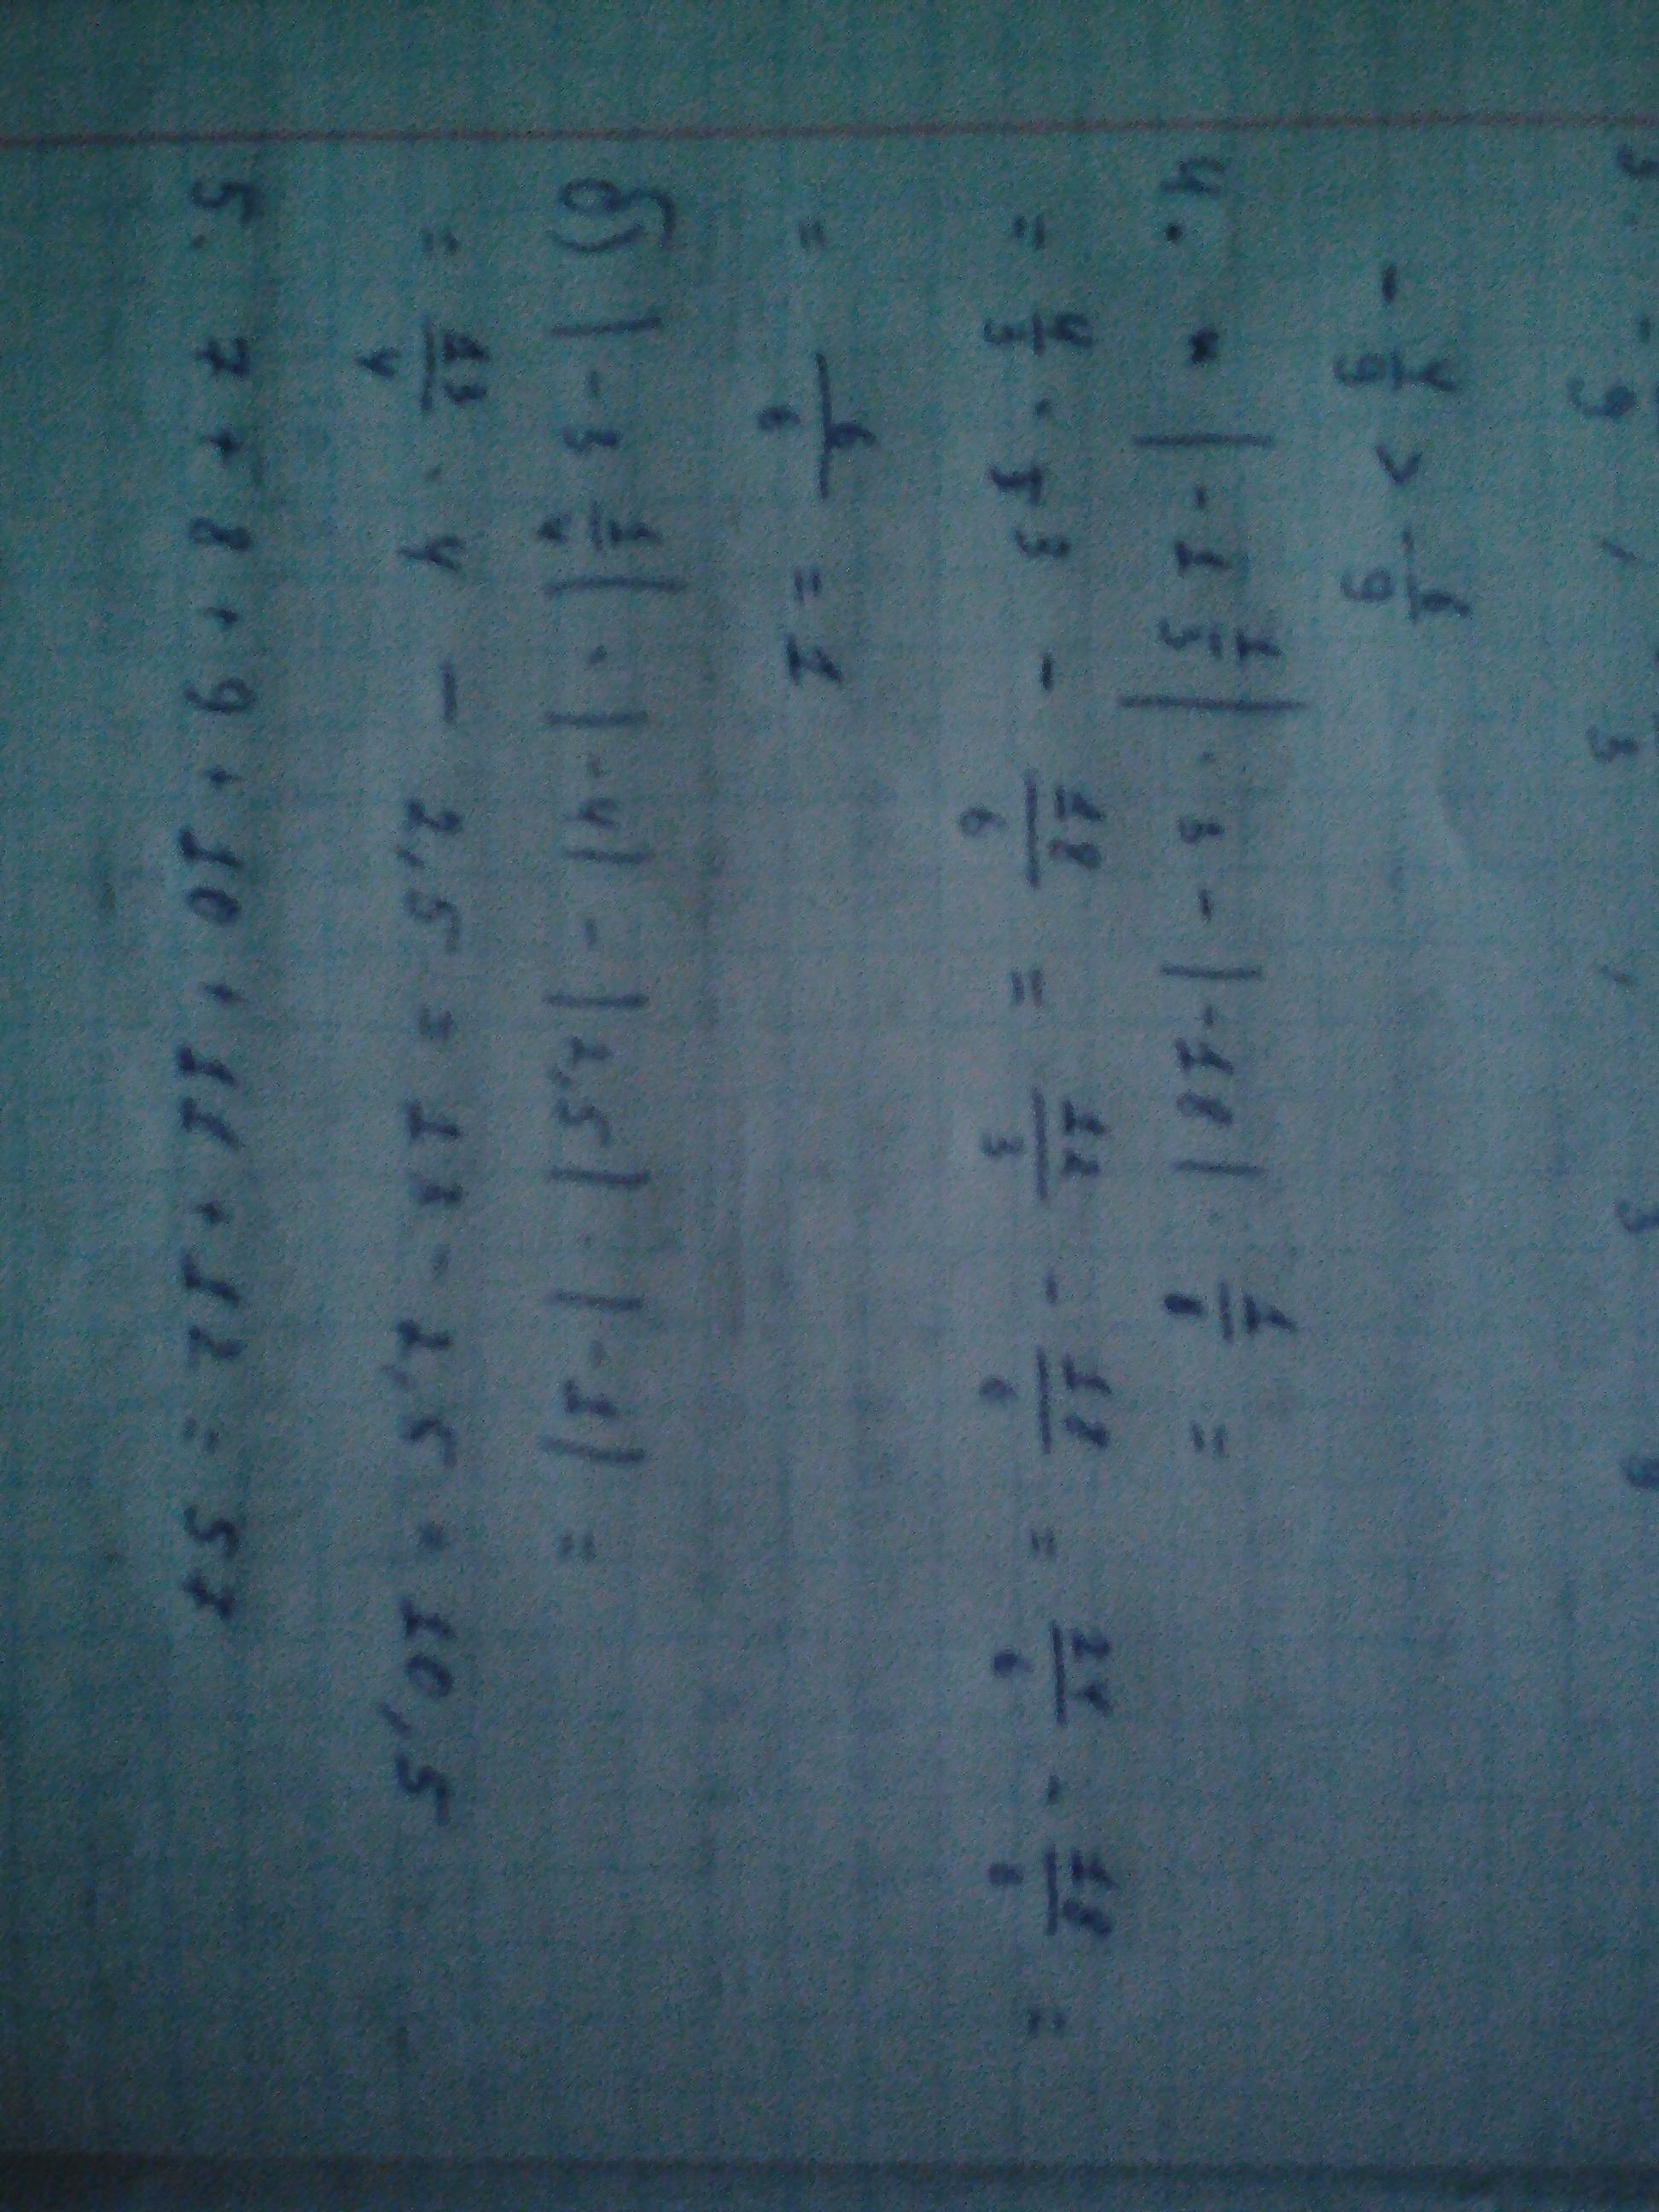 - 4/9 > - 6/9
4. |-1 1/3| · 3 - |-18| · 1/6 =
= 4/3 · 3 - 18/6 = 12/3 - 18/6 = 24/6 - 18/6 =
= 6/6 = 1
б) |-3 1/4| · |-4| - |2,5| · |-1| =
= 13/4 · 4 - 2,5 = 13 - 2,5 = 10,5
5. 7 + 8 + 9 + 10 + 11 + 12 = 57